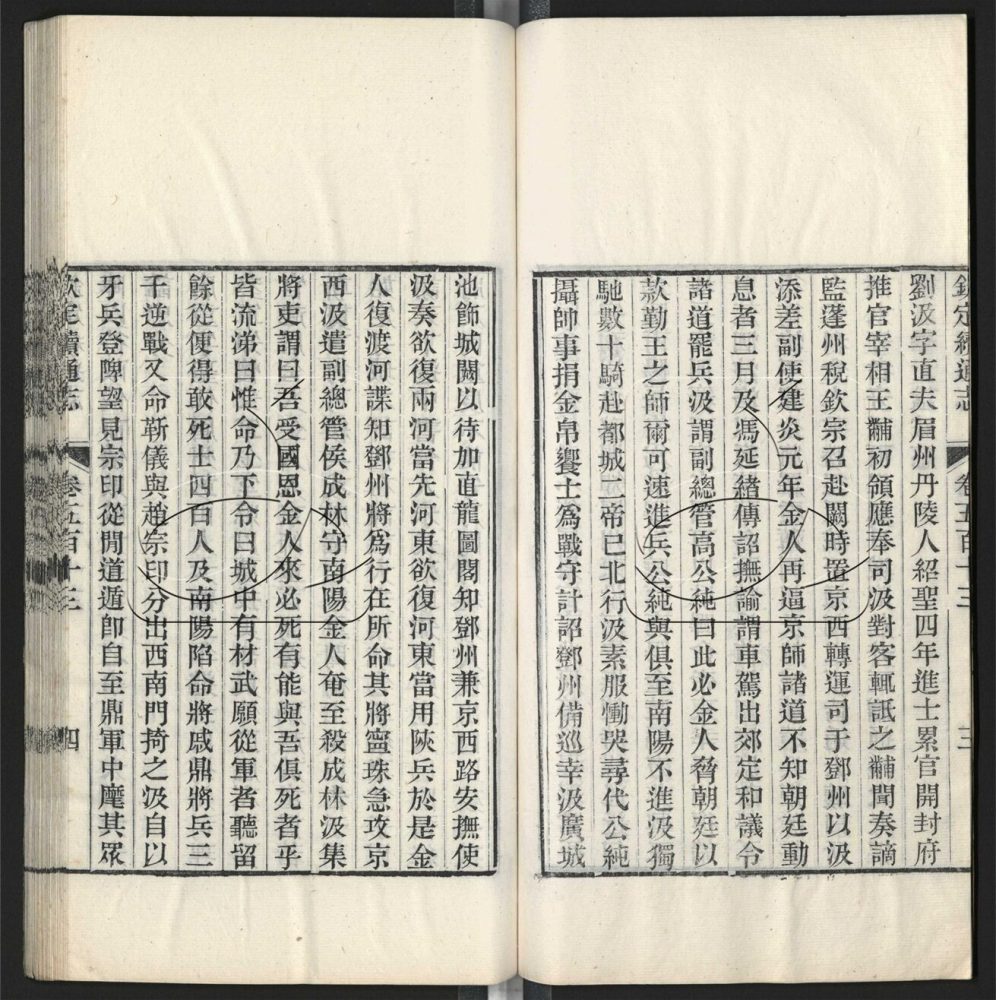 欽定續通志 卷五百十三 三
劉汲字直夫眉州丹陵人紹聖四年進士累官開封府
推官宰相王黼初領應奉司汲對客輒詆之黼聞奏謫
監蓬州稅欽宗召赴闕時置京西轉運司于鄧州以汲
添差副使建炎元年金人再逼京師諸道不知朝廷動
息者三月及馮延緒傳詔撫諭謂車駕出郊定和議令
諸道罷兵汲謂副總管高公純曰此必金人脅朝廷以
款勤王之師爾可速進兵公純與俱至南陽不進汲獨
馳數十騎赴都城二帝已北行汲素服慟哭尋代公純
攝帥事捐金帛饗士為戰守計詔鄧州備巡幸汲廣城
池飾城闕以待加直龍圖閣知鄧州兼京西路安撫使
汲奏欲復兩河當先河東欲復河東當用陝兵於是金
人復渡河諜知鄧州將為行在所命其將寗珠急攻京
西汲遣副總管侯成林守南陽金人奄至殺成林汲集
將吏謂曰吾受國恩金人來必死有能與吾俱死者乎
皆流涕曰惟命乃下令曰城中有材武願從軍者聽留
餘從便得敢死士四百人及南陽陷命將戚鼎將兵三
千逆戰又命靳儀與趙宗印分出西南門掎之汲自以
牙兵登陴望見宗印從閒道遁卽自至鼎軍中麾其眾
欽定續通志 卷五百十三 四